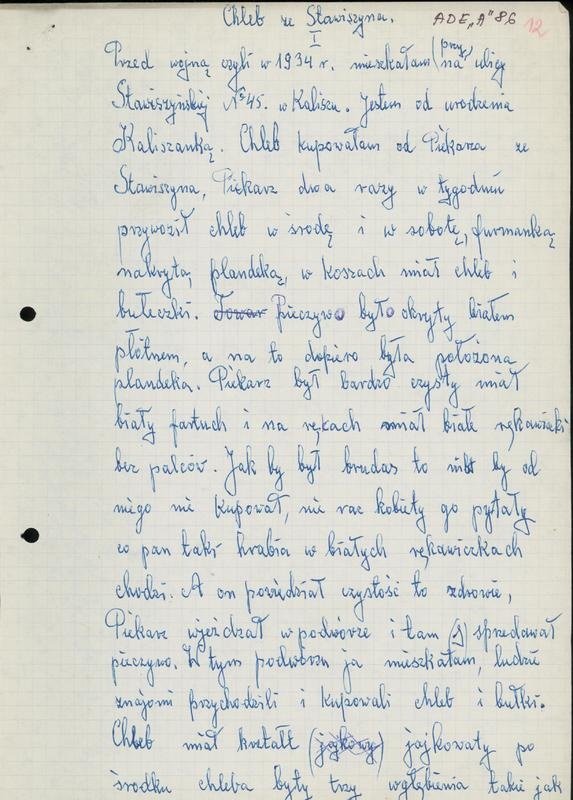 Chleb ze Stawiszyna.
ADE „A" 86
12
I
Przed wojną czyli w 1934 r. mieszkałam (przy) na ulicy
Stawiszyńskiej № 45. w Kaliszu. Jestem od urodzenia
Kaliszanką. Chleb kupowałam od Piekarza ze
Stawiszyna, Piekarz dwa razy w tygodniu
przywoził chleb w środę i w sobotę, furmanką
nakrytą plandeką, w koszach miał chleb i
bułeczki. Towar Pieczywo było okryty białem
płótnem, a na to dopiero była położona
plandeka. Piekarz był bardzo czysty miał
biały fartuch i na rękach miał białe rękawiczki
bez palców. Jak by był brudas to nikt by od
niego nie kupował, nie raz kobiety go pytały
co pan taki hrabia w białych rękawiczkach
chodzi. A on powiedział czystość to zdrowie,
Piekarz wjeżdzał w podwórze i tam sprzedawał
pieczywo. W tym podwórzu ja mieszkałam, ludzie
znajomi przychodzili i kupowali chleb i bułki.
Chleb miał kształt (jajkowy) jajkowaty po
środku chleba były trzy wgłębienia takie jak